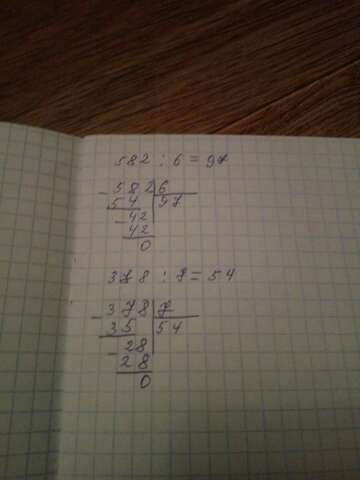 582 : 6 = 97
- 582 6
54 97
- 42
42
0
378 : 7 = 54
- 378 7
35 54
- 28
28
0